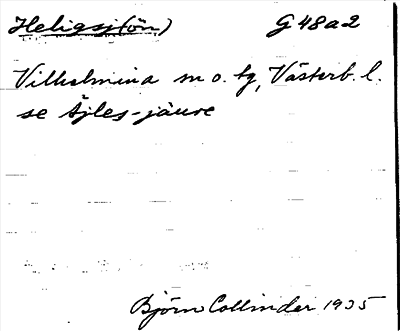 Heligsj(ön) G 48 a 2
Vilhelmina sn o. tg, Västerb. l.
se Ajles-jaure
Björn Collinder 1935